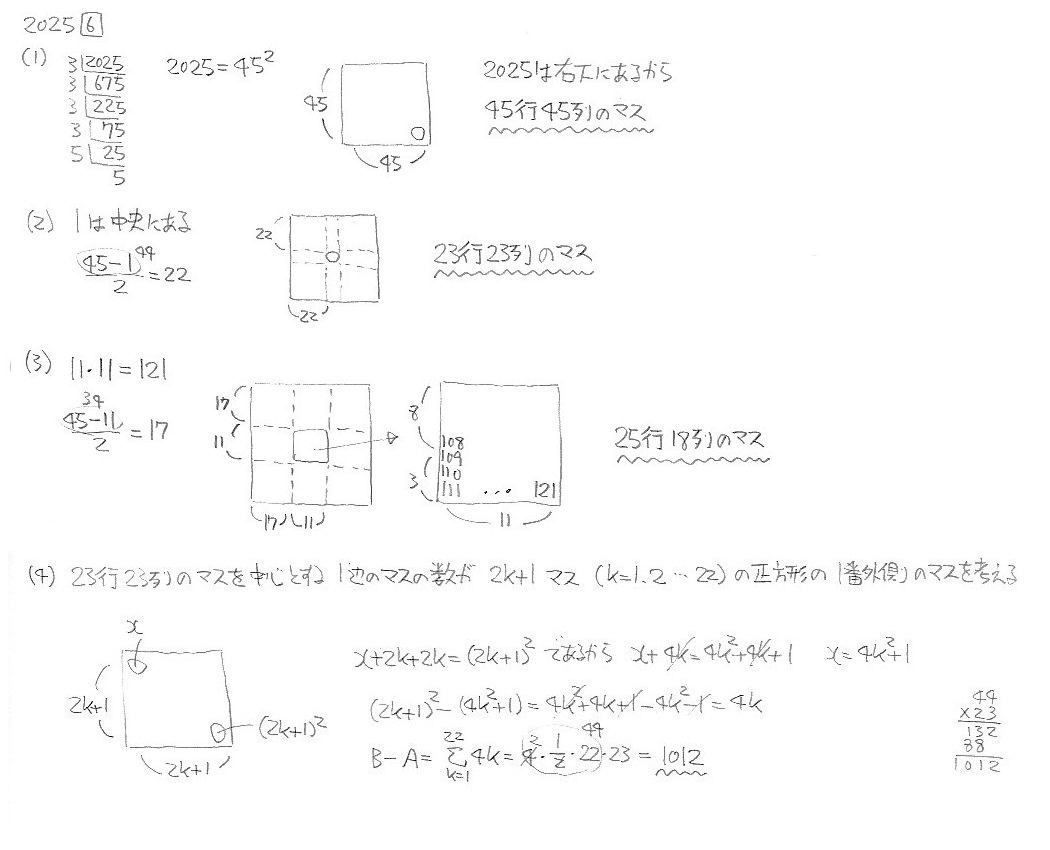 2025 6
(1) 3|2025 2025=45² 2025は右下にあるから
3|675
3|225 45 45行45列のマス
3|75
5|25
5 45
(2) 1は中央にある
(45-1)/2=22 44 22 23行23列のマス
22
(3) 11・11=121
34
(45-11)/2=17 17 11 8 108 25行18列のマス
109
110
3 111 … 121
17 11 11
(4) 23行23列のマスを中心とする 1辺のマスの数が 2k+1マス (k=1.2…22)の正方形の1番外側のマスを考える
x
x+2k+2k=(2k+1)²であるから x+4k=4k²+4k+1 x=4k²+1
2k+1
(2k+1)² (2k+1)²-(4k²+1)=4k²+4k+1-4k²-1=4k
2k+1 B-A=Σ[k=1→22]4k=4・1/2・22・23=1012
2 44
44
×23
132
88
1012